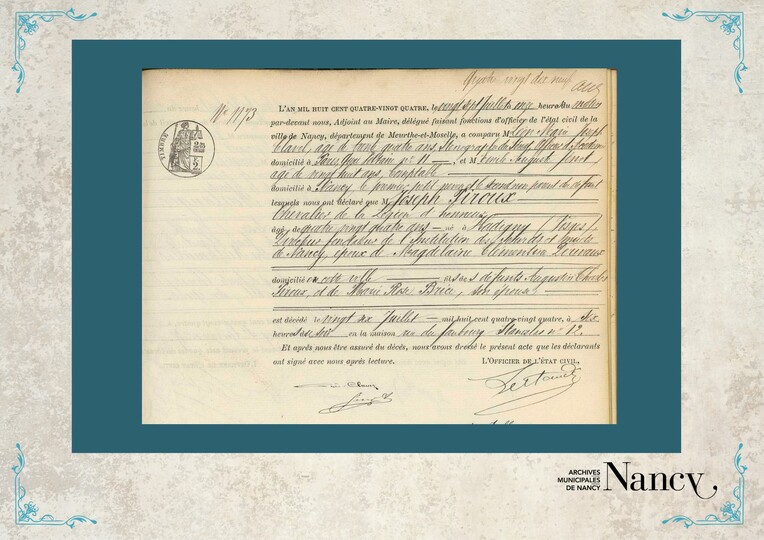 Quatre vingt dix neuf
N° 1173
TIMBRE
L'AN MIL HUIT CENT QUATRE-VINGT QUATRE, le vingt sept Juillet à onze heures du matin
par-devant nous, Adjoint au Maire, délégué faisant fonctions d'officier de l'état civil de la
ville de Nancy, département de Meurthe-et-Moselle, a comparu M Léon Marie Joseph
Clavel, âgé de trente quatre ans,
domicilié à n° 11 et M Emile August
âgé de vingt huit ans, comptable
domicilié à Nancy le premier petit gendre et le second non parent du défunt
lesquels nous ont déclaré que M Joseph Piroux
Chevalier de la Légion d'honneur
âgé de quatre vingt quatre ans né à Hadigny /Vosges/
Directeur fondateur de l'Institution des sourds et muets
de Nancy, époux de Magdelaine Clémentine
domicilié en cette ville fils de défunts Augustin Charles
Piroux, et de Marie Rose Brice, son épouse
est décédé le vingt six Juillet mil huit cent quatre-vingt quatre, à six
heures du soir en la maison rue du faubourg Stanislas n° 12.
Et après nous être assuré du décès, nous avons dressé le présent acte que les déclarants
ont signé avec nous après lecture.
L'OFFICIER DE L'ÉTAT CIVIL,
Clavel
ARCHIVES
MUNICIPALES
DE NANCY
Nancy,